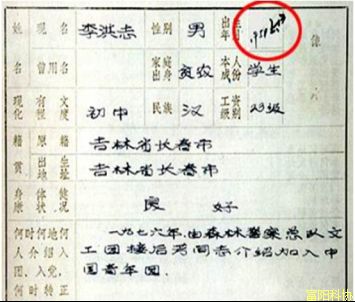 姓名 现名 李洪志 性别 男 出生年月
曾用名 家庭出身 贫农 本人成份 学生
现有文化程度 初中 民族 汉 工资级别 23级
籍贯 原籍 吉林省长春市
出生地址 吉林省长春市
身体健康状况 良好
何时何地何人介绍入团、入党,何时转正 一九七六年,由森林警察总队文
工团接后芳同志介绍加入中
国青年团。
富阳科协